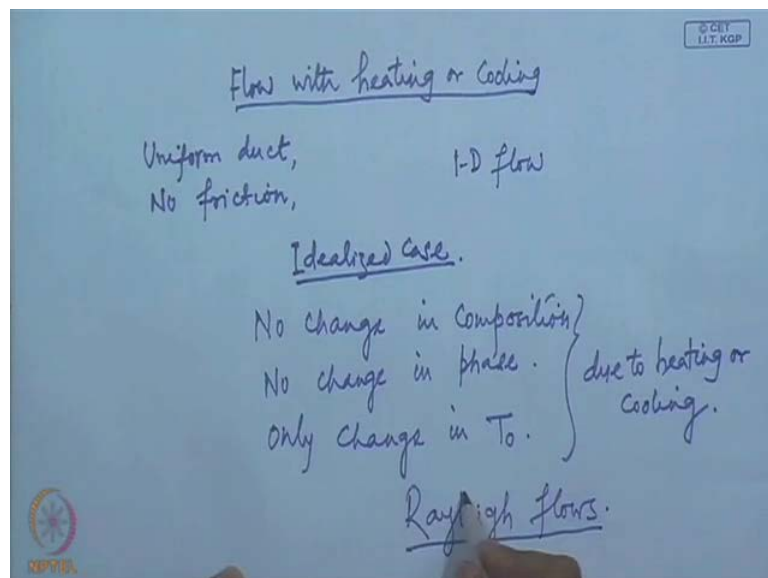 © CET
I.I.T. KGP
Flow with heating or Cooling
Uniform duct, 1-D flow
No friction,
Idealized Case.
No change in Composition
No change in phase.
Only change in To.
due to heating or
Cooling.
Rayleigh flows.
NPTEL